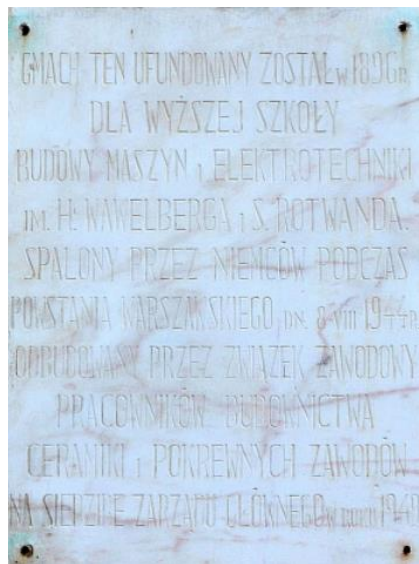 GMACH TEN UFUNDOWANY ZOSTAŁ w 1896 R.
DLA WYŻSZEJ SZKOŁY
BUDOWY MASZYN i ELEKTROTECHNIKI
IM. H. WAWELBERGA i S. ROTWANDA.
SPALONY PRZEZ NIEMCÓW PODCZAS
POWSTANIA WARSZAWSKIEGO, DN. 8 VIII 1944 R.
ODBUDOWANY PRZEZ ZWIĄZEK ZAWODOWY
PRACOWNIKÓW BUDOWNICTWA
CERAMIKI i POKREWNYCH ZAWODÓW
NA SIEDZIBĘ ZARZĄDU GŁÓWNEGO w ROKU